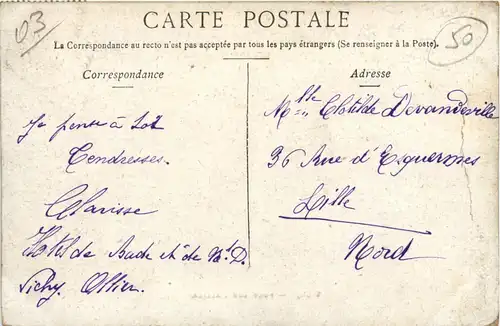 03
50
CARTE POSTALE
La Correspondance au recto n'est pas acceptée par tous les pays étrangers (Se renseigner à la Poste).
Correspondance
Adresse
Je pense à toi
Tendresses.
Clarisse
Hotel de Bade et de
Vichy. Allier.
Mlle Clotilde Devandeville
36 Rue d'Esquermes
Lille
Nord